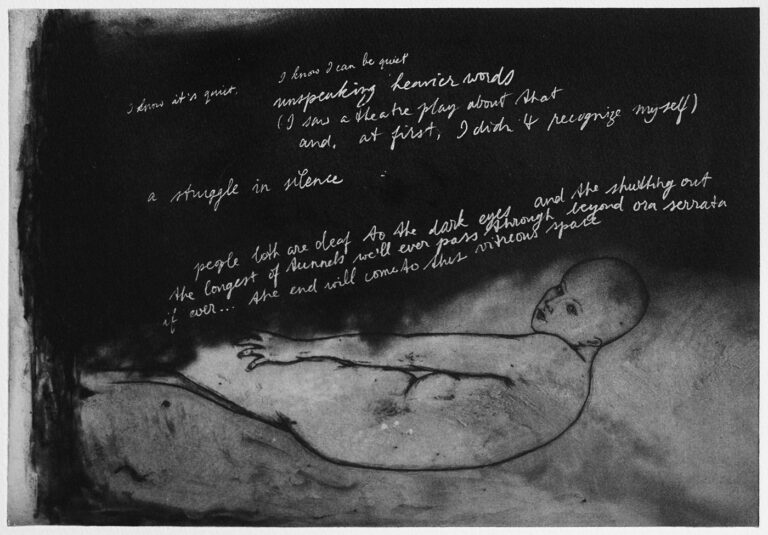 I know I can be quiet
I know it's quiet.
unspeaking heavier words
(I saw a theatre play about that
and, at first, I didn't recognize myself)
a struggle in silence
people both are deaf to the dark eyes and the shutting out
the longest of tunnels we'll ever pass through beyond ora serrata
if ever... the end will come to this vitreous space